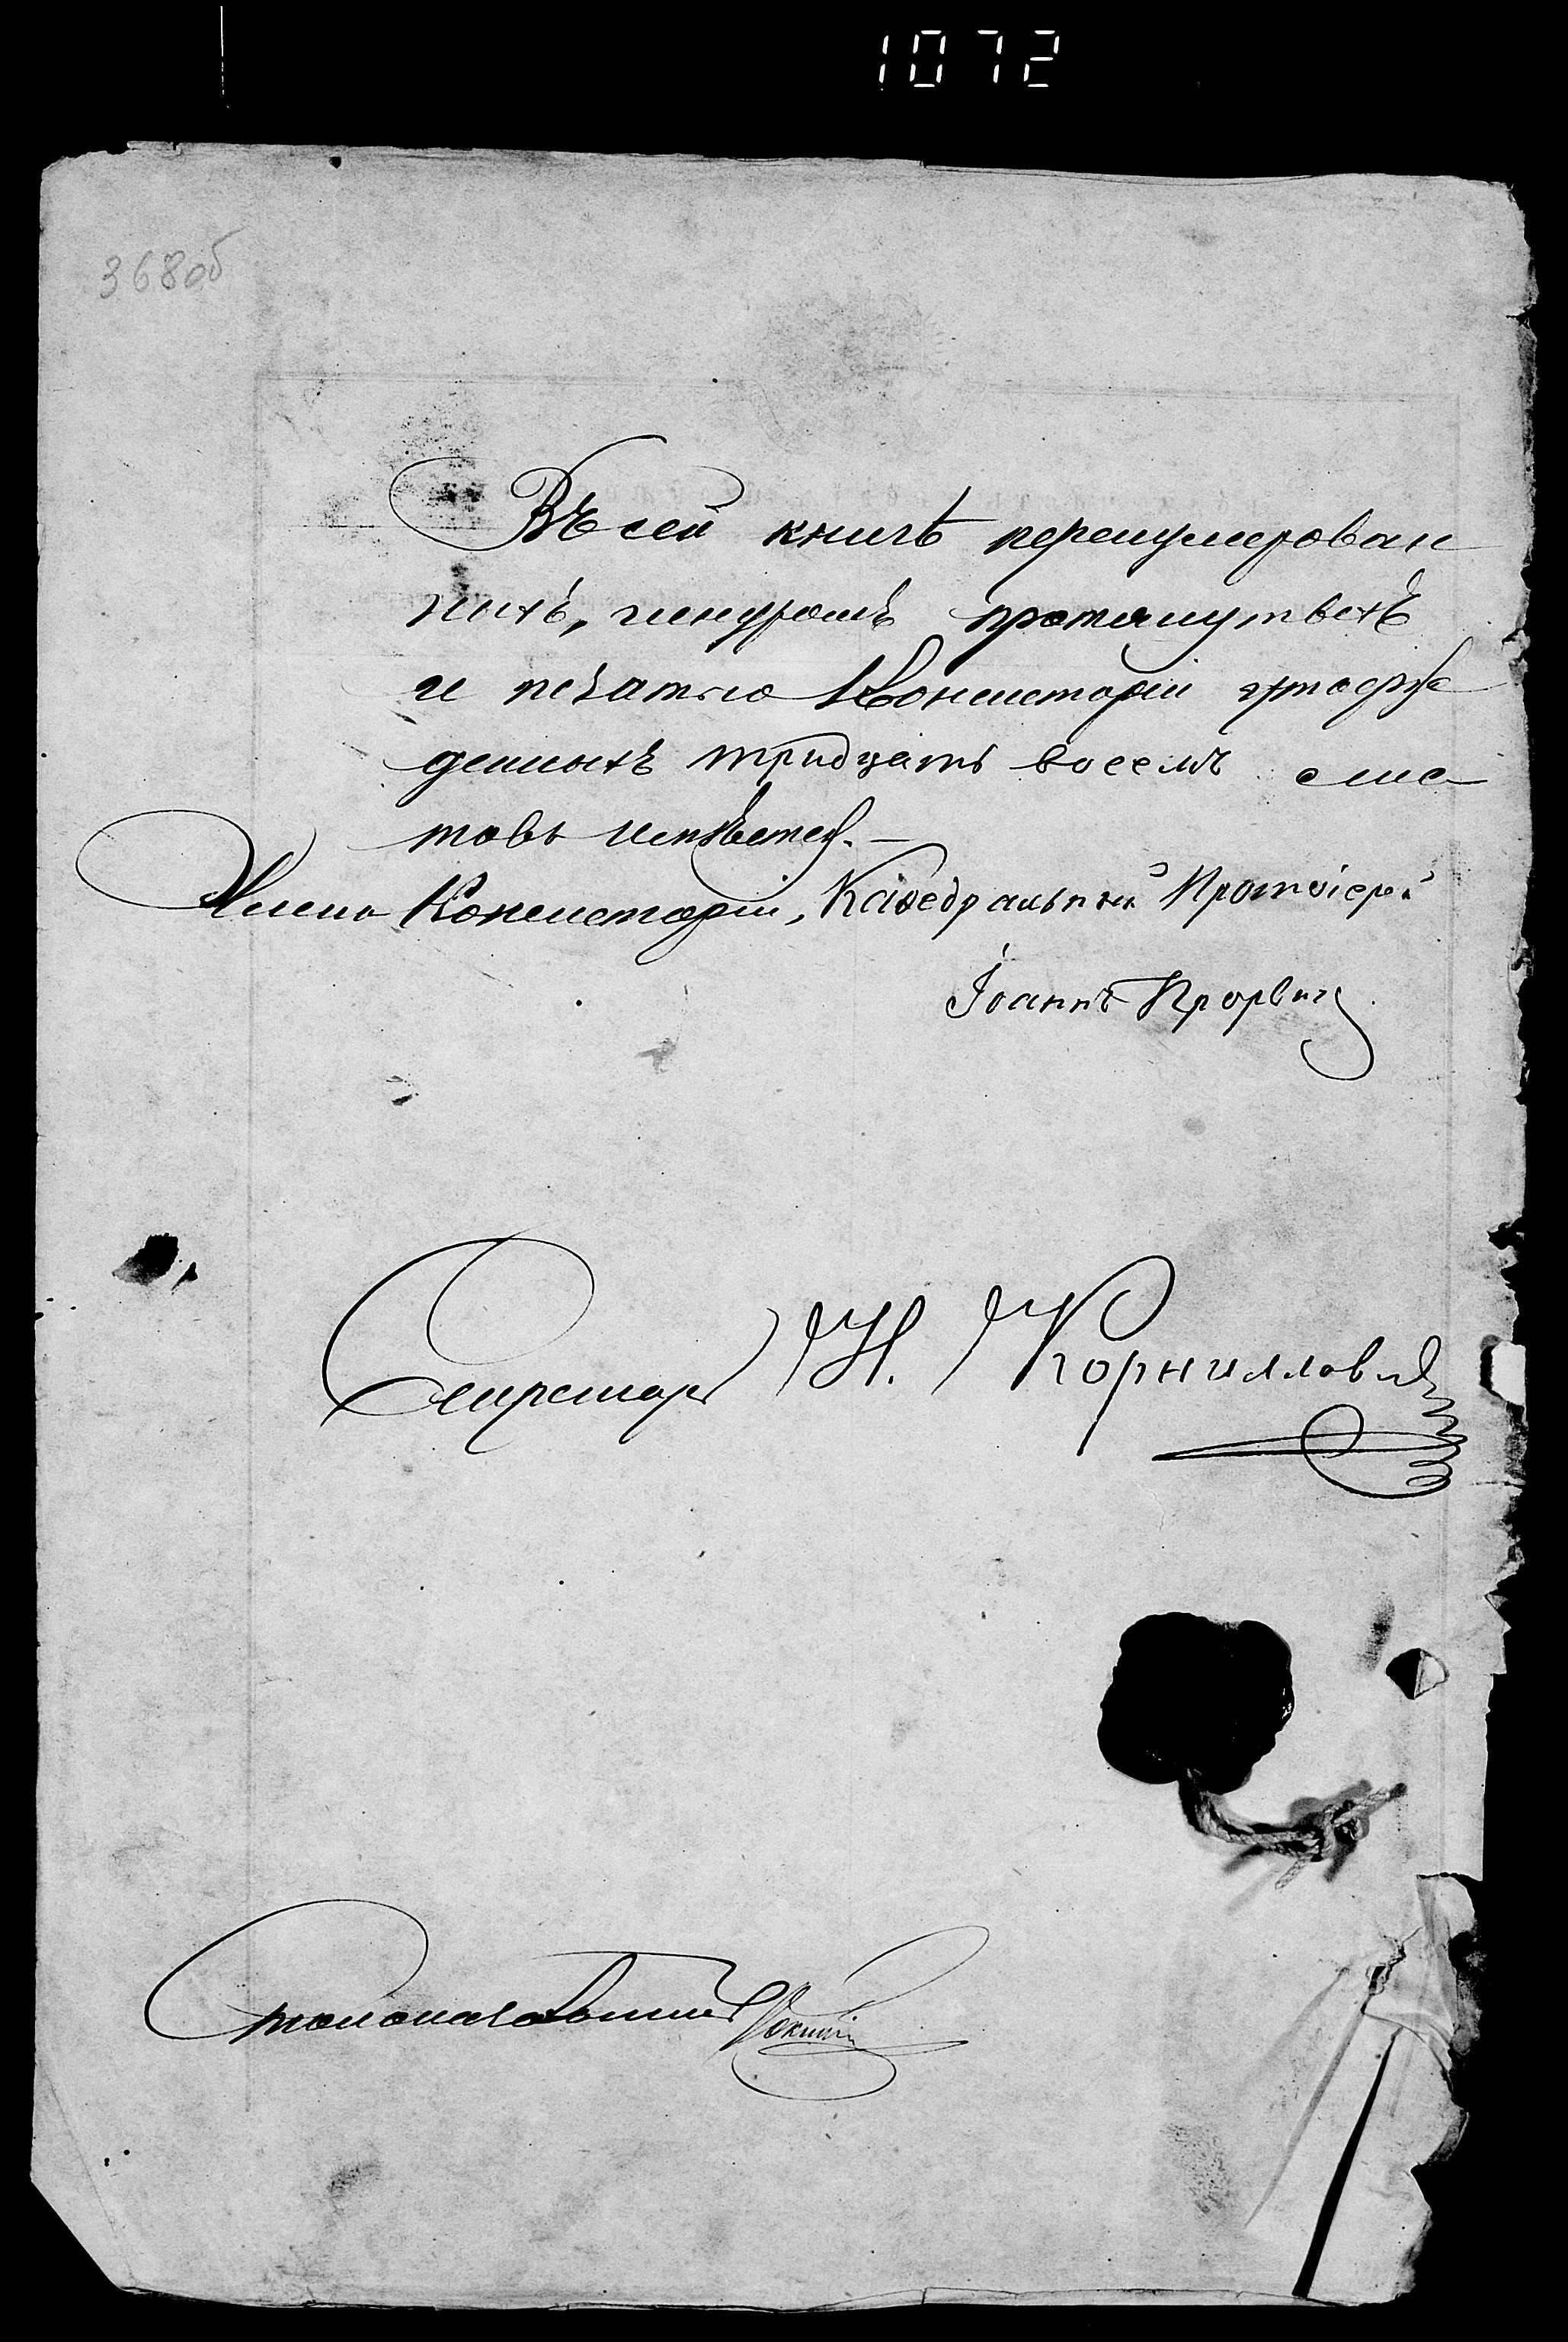 1072
368об
Въ сей книгѣ перенумерован
ныхъ, шнуромъ протянутыхъ
и печатью Консисторіи утверж
денныхъ тридцать восемь лис
товъ имѣется. —
Членъ Консисторіи, Каѳедральный Протоіерей
Іоаннъ
Секретарь Н. Корниллович
Столоначальникъ